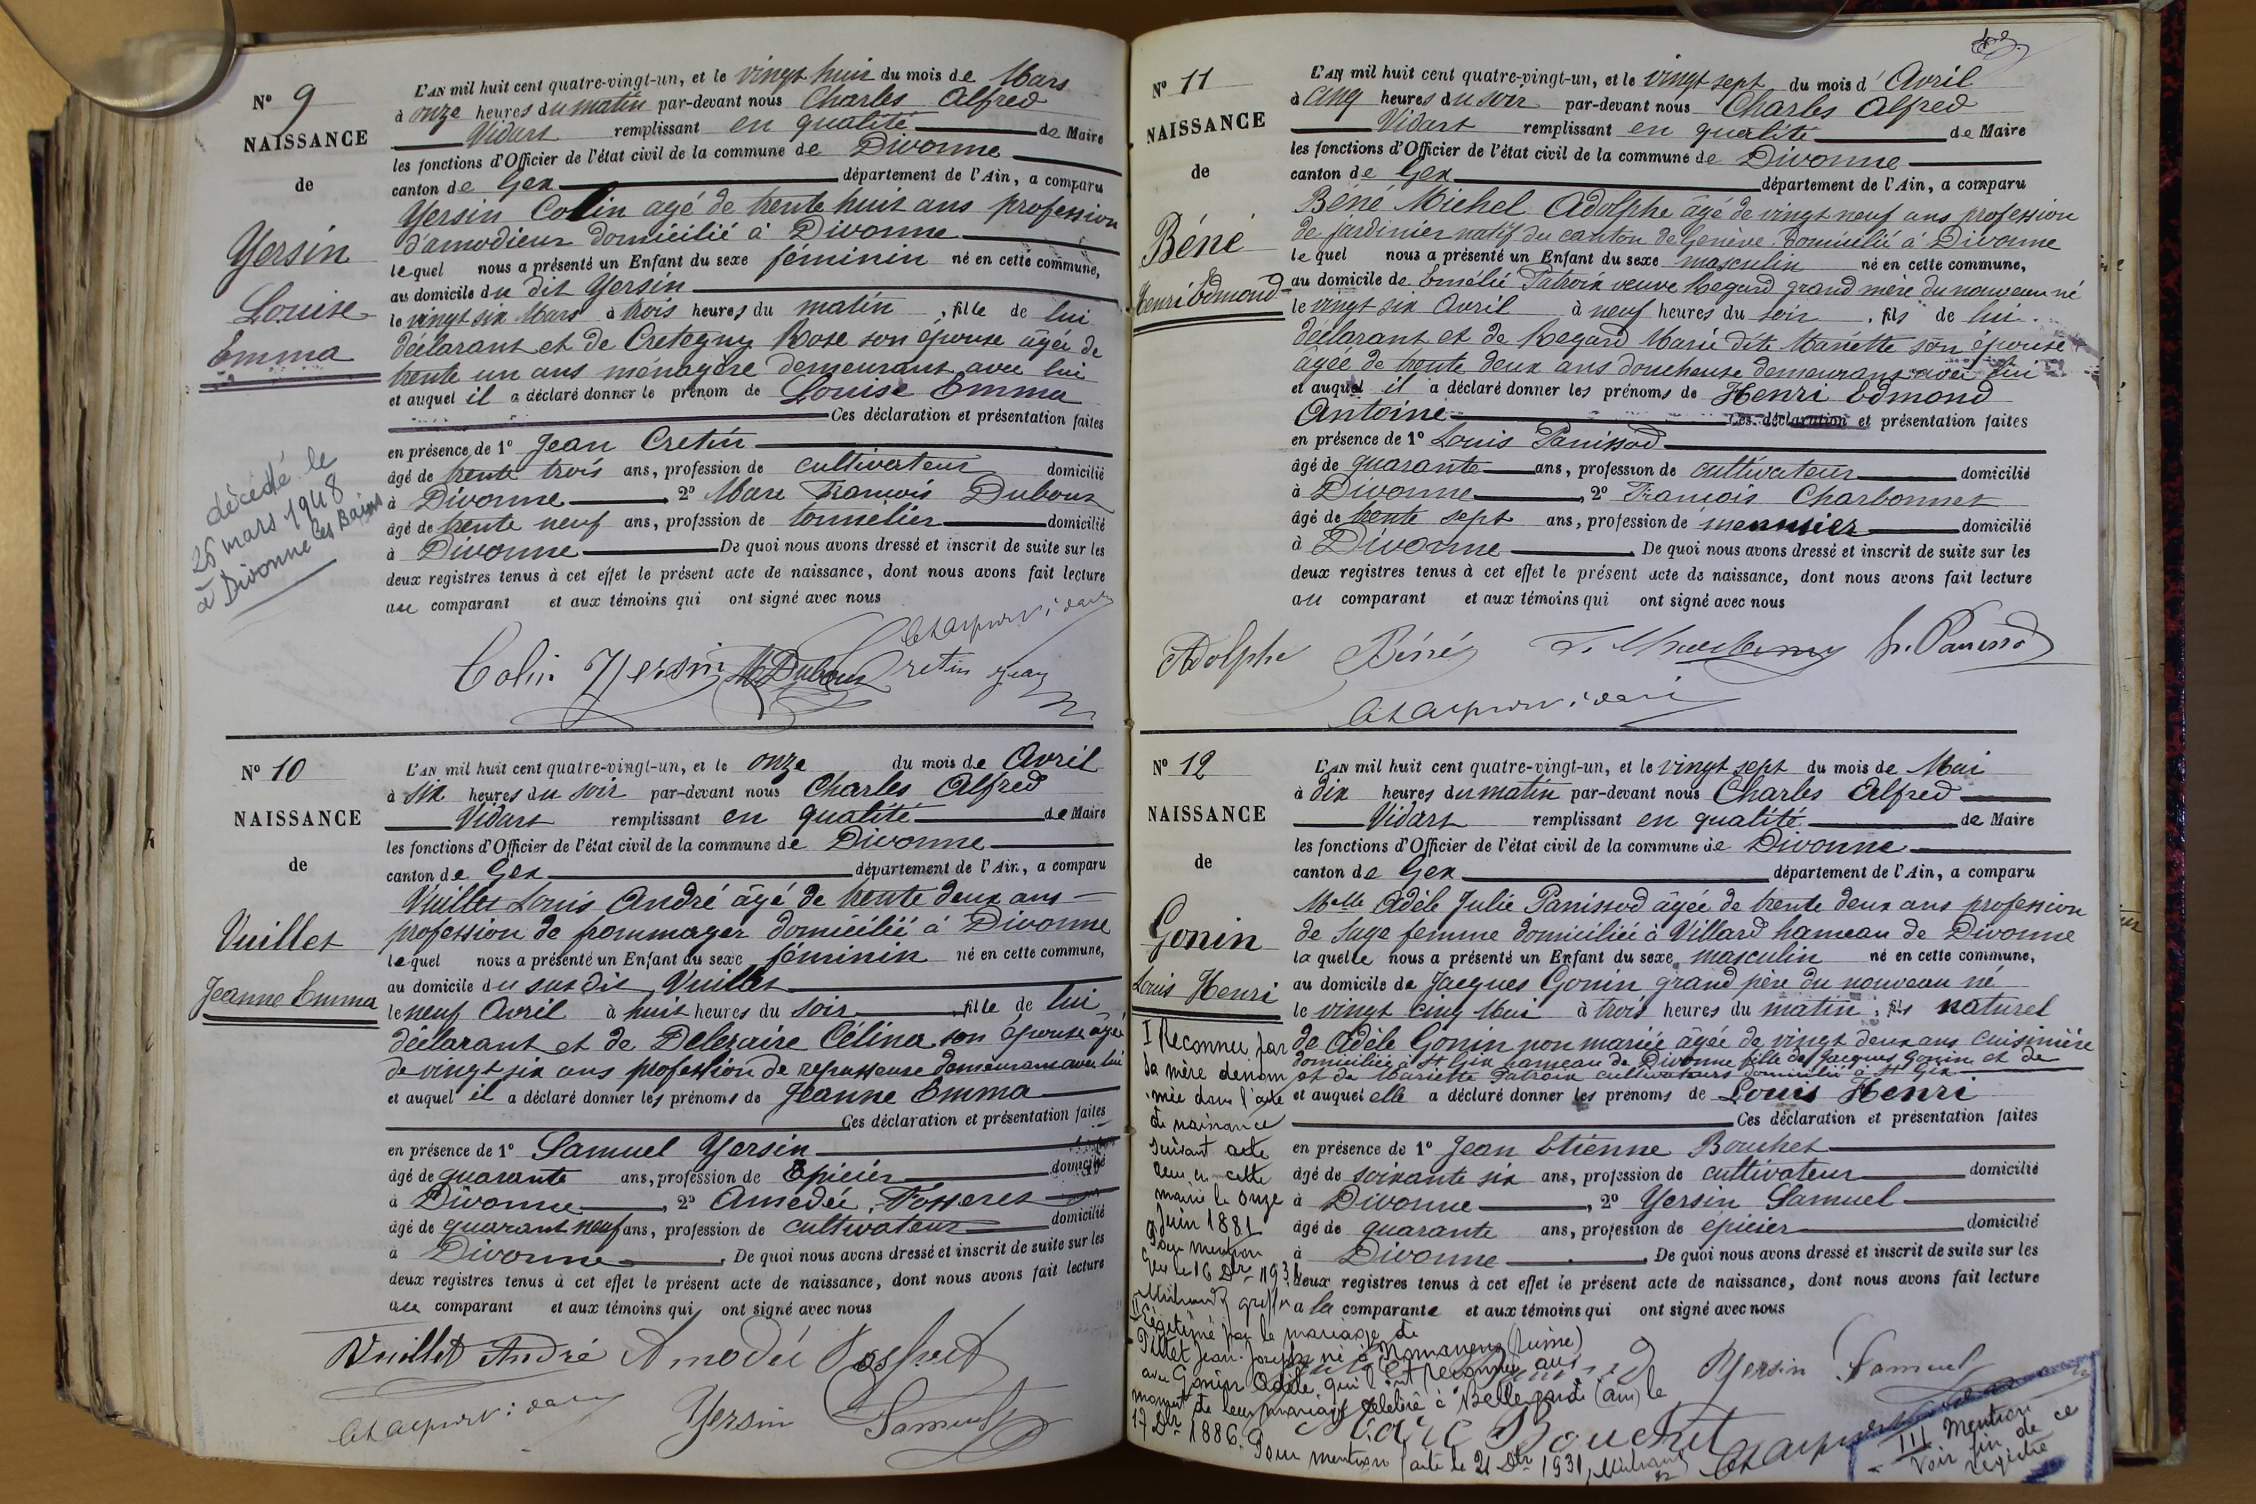 N° 9
NAISSANCE
de
Yersin
Louise
Emma
décédé le
26 mars 1948
à Divonne les Bains
L'AN mil huit cent quatre-vingt-un, et le vingt huit du mois de Mars
à onze heures du matin par-devant nous Charles Alfred
Vidart remplissant en qualité de Maire
les fonctions d'Officier de l'état civil de la commune de Divonne
canton de Gex département de l'Ain, a comparu
Yersin Colin agé de trente huit ans profession
d'amodieur domicilié à Divonne
lequel nous a présenté un Enfant du sexe féminin né en cette commune,
au domicile du dit Yersin
le vingt six Mars à trois heures du matin, fille de lui
déclarant et de Cretegny Rose son épouse âgée de
trente un ans ménagère demeurant avec lui
et auquel il a déclaré donner le prénom de Louise Emma
Ces déclaration et présentation faites
en présence de 1° Jean Cretin
âgé de trente trois ans, profession de cultivateur domicilié
à Divonne, 2° Marc François Duboux
âgé de trente neuf ans, profession de tonnelier domicilié
à Divonne De quoi nous avons dressé et inscrit de suite sur les
deux registres tenus à cet effet le présent acte de naissance, dont nous avons fait lecture
au comparant et aux témoins qui ont signé avec nous
Colin Yersin M Duboux Cretin Jean
N° 10
NAISSANCE
de
Vuillet
Jeanne Emma
L'AN mil huit cent quatre-vingt-un, et le onze du mois de Avril
à six heures du soir par-devant nous Charles Alfred
Vidart remplissant en qualité de Maire
les fonctions d'Officier de l'état civil de la commune de Divonne
canton de Gex département de l'Ain, a comparu
Vuillet Louis André âgé de trente deux ans
profession de frommager domicilié à Divonne
lequel nous a présenté un Enfant du sexe féminin né en cette commune,
au domicile du susdit Vuillet
le neuf Avril à huit heures du soir, fille de lui
déclarant et de Delezaire Célina son épouse âgée
de vingt six ans profession de repasseuse demeurant avec lui
et auquel il a déclaré donner les prénoms de Jeanne Emma
Ces déclaration et présentation faites
en présence de 1° Samuel Yersin
âgé de quarante ans, profession de Epicier domicilié
à Divonne, 2° Amédée Fosseret
âgé de quarant neuf ans, profession de cultivateur domicilié
à Divonne. De quoi nous avons dressé et inscrit de suite sur les
deux registres tenus à cet effet le présent acte de naissance, dont nous avons fait lecture
au comparant et aux témoins qui ont signé avec nous
Vuillet André Amedé
Yersin Samuel
N° 11
NAISSANCE
de
Béné
Henri Edmond
L'AN mil huit cent quatre-vingt-un, et le vingt sept du mois d'Avril
à cinq heures du soir par-devant nous Charles Alfred
Vidart remplissant en qualité de Maire
les fonctions d'Officier de l'état civil de la commune de Divonne
canton de Gex département de l'Ain, a comparu
Béné Michel Adolphe âgé de vingt neuf ans profession
de jardinier natif du canton de Genève domicilié à Divonne
lequel nous a présenté un Enfant du sexe masculin né en cette commune,
au domicile de Emélie Patroix veuve Regard grand mère du nouveau né
le vingt six Avril à neuf heures du soir, fils de lui
déclarant et de Regard Marie dite Mariette son épouse
agée de trente deux ans doucheuse demeurant avec lui
et auquel il a déclaré donner les prénoms de Henri Edmond
Antoine Ces déclaration et présentation faites
en présence de 1° Louis Panissod
âgé de quarante ans, profession de cultivateur domicilié
à Divonne, 2° François Charbonnet
âgé de trente sept ans, profession de menuisier domicilié
à Divonne. De quoi nous avons dressé et inscrit de suite sur les
deux registres tenus à cet effet le présent acte de naissance, dont nous avons fait lecture
au comparant et aux témoins qui ont signé avec nous
Adolphe Béné
N° 12
NAISSANCE
de
Gonin
Louis Henri
L'AN mil huit cent quatre-vingt-un, et le vingt sept du mois de Mai
à dix heures du matin par-devant nous Charles Alfred
Vidart remplissant en qualité de Maire
les fonctions d'Officier de l'état civil de la commune de Divonne
canton de Gex département de l'Ain, a comparu
Melle Adèle Julie Panissod âgée de trente deux ans profession
de sage femme domiciliée à Villard hameau de Divonne
laquelle nous a présenté un Enfant du sexe masculin né en cette commune,
au domicile de Jacques Gonin grand père du nouveau né
le vingt cinq Mai à trois heures du matin, fils naturel
de Adèle Gonin non mariée âgée de vingt deux ans cuisinière
domiciliée à St Gix hameau de Divonne fille de Jacques Gonin et de
et de Mariette Patroix cultivateurs domicilié à St Gix
et auquel elle a déclaré donner les prénoms de Louis Henri
Ces déclaration et présentation faites
en présence de 1° Jean Etienne Bouchet
âgé de soixante six ans, profession de cultivateur domicilié
à Divonne, 2° Yersin Samuel
âgé de quarante ans, profession de epicier domicilié
à Divonne. De quoi nous avons dressé et inscrit de suite sur les
deux registres tenus à cet effet le présent acte de naissance, dont nous avons fait lecture
a la comparante et aux témoins qui ont signé avec nous
Yersin Samuel
Bouchet
I Reconnu par
sa mère dénom
mée dans l'acte
de naissance
suivant acte
reçu en cette
mairie le onze
Juin 1881
Pour mention
Gex le 16 Dbre 1931
II Légitimé par le mariage de
Pillet Jean-Joseph né à Romanens (Suisse)
avec Gonin Adèle qui l'ont reconnu au
moment de leur mariage célébré à Bellegarde (ain) le
17 Dbre 1886. Pour mention faite le 21 Dbre 1931,
III Mention
Voir fin de ce
registre